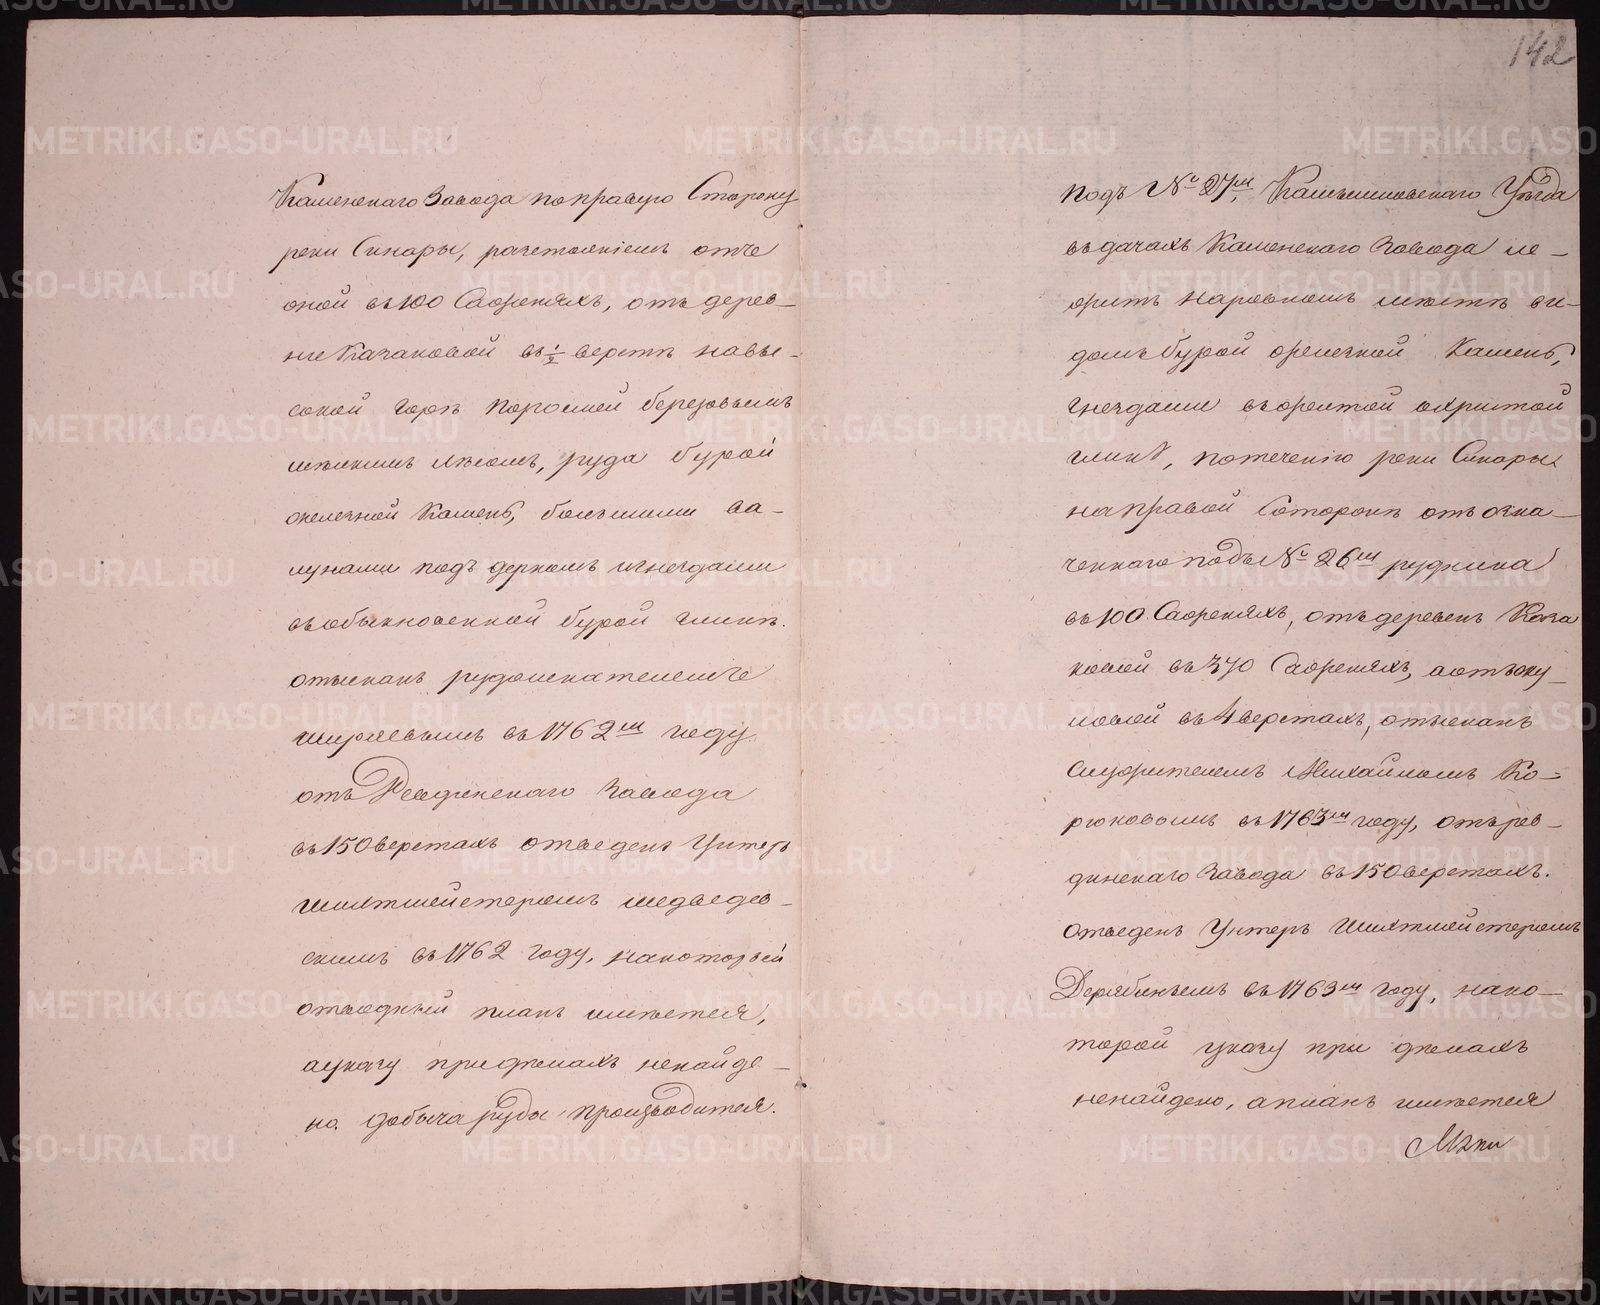 142
Каменскаго Завода по правую Сторону
реки Синары, разстояніемъ отъ
оной въ 100 Саженяхъ, отъ дерев-
ни Казаковой въ 1/2 верстѣ на вы-
сокой горѣ поросшей березовымъ
мѣлкимъ лѣсомъ, руда бурой
желѣзной Камень, большими ва-
лунами подъ дерномъ и гнездами
въ обыкновенной бурой глинѣ.
отысканъ рудоискателемъ
Ширяевымъ въ 1762мъ году.
отъ Ревдинскаго Завода
въ 150 верстахъ отведенъ Унтеръ
Шихтмейстеромъ Медведев-
скимъ въ 1762 году, на который
отводный планъ имѣется,
а указу при дѣлахъ ненайде-
но. Добыча руды производится.
подъ № 27мъ, Камышловскаго Уѣзда
въ дачахъ Каменскаго Завода ле-
житъ на ровномъ мѣстѣ ви-
домъ бурой желѣзной Камень,
гнездами въ желтой охристой
глинѣ, по теченію реки Синары
на правой Сторонѣ отъ озна-
ченнаго подъ № 26мъ рудника
въ 100 Саженяхъ, отъ деревень Каза
ковой въ 370 Саженяхъ, а отъ Оку-
ловой въ 4 верстахъ, отысканъ
Служителемъ Михайломъ Ко-
рюковымъ въ 1763мъ году, отъ Рев-
динскаго Завода въ 150 верстахъ.
отведенъ Унтеръ Шихтмейстеромъ
Дерябинымъ въ 1763мъ году, на ко-
торой указу при дѣлахъ
ненайдено, а планъ имѣется